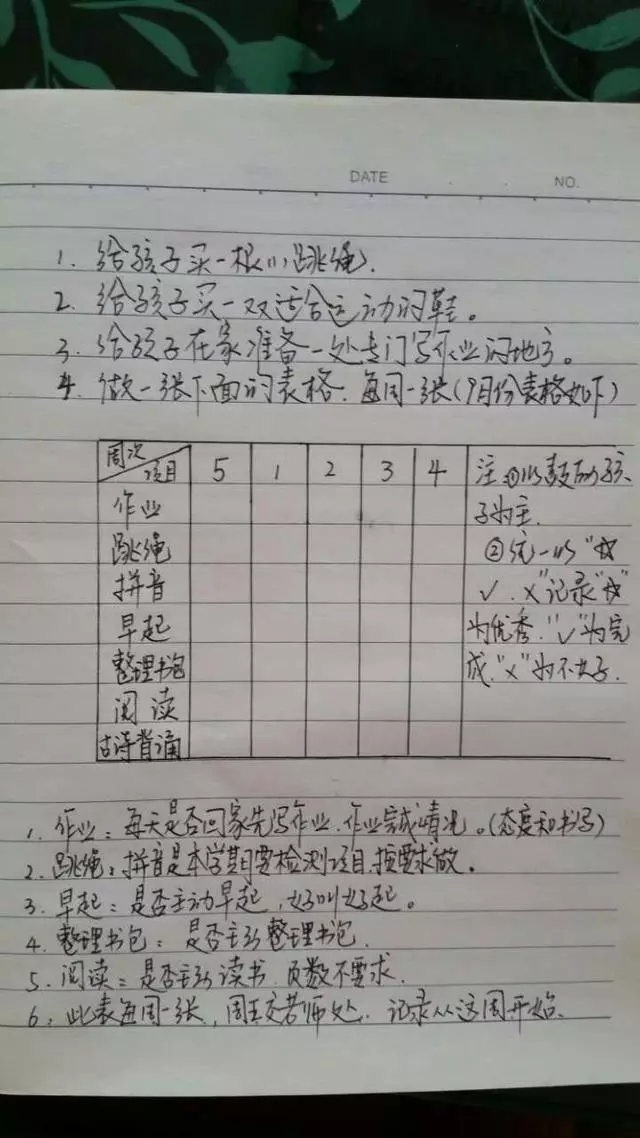 DATE
NO.
1. 给孩子买一根小跳绳.
2. 给孩子买一双适合运动的鞋。
3. 给孩子在家准备一处专门写作业的地方。
4. 做一张下面的表格. 每周一张(9月份表格如下)
周次
项目 5 1 2 3 4 注:①以鼓励孩
作业 子为主.
跳绳 ②统一以"☆
拼音 √. ×"记录"☆"
早起 为优秀."√"为完
整理书包 成."×"为不太好.
阅读
古诗背诵
1. 作业: 每天是否回家先写作业. 作业完成情况。(态度和书写)
2. 跳绳: 拼音是本学期要检测项目, 按要求做。
3. 早起: 是否主动早起, 好叫好起。
4. 整理书包: 是否主动整理书包.
5. 阅读: 是否主动读书. 页数不要求.
6. 此表每周一张, 周五交老师处. 记录从这周开始.